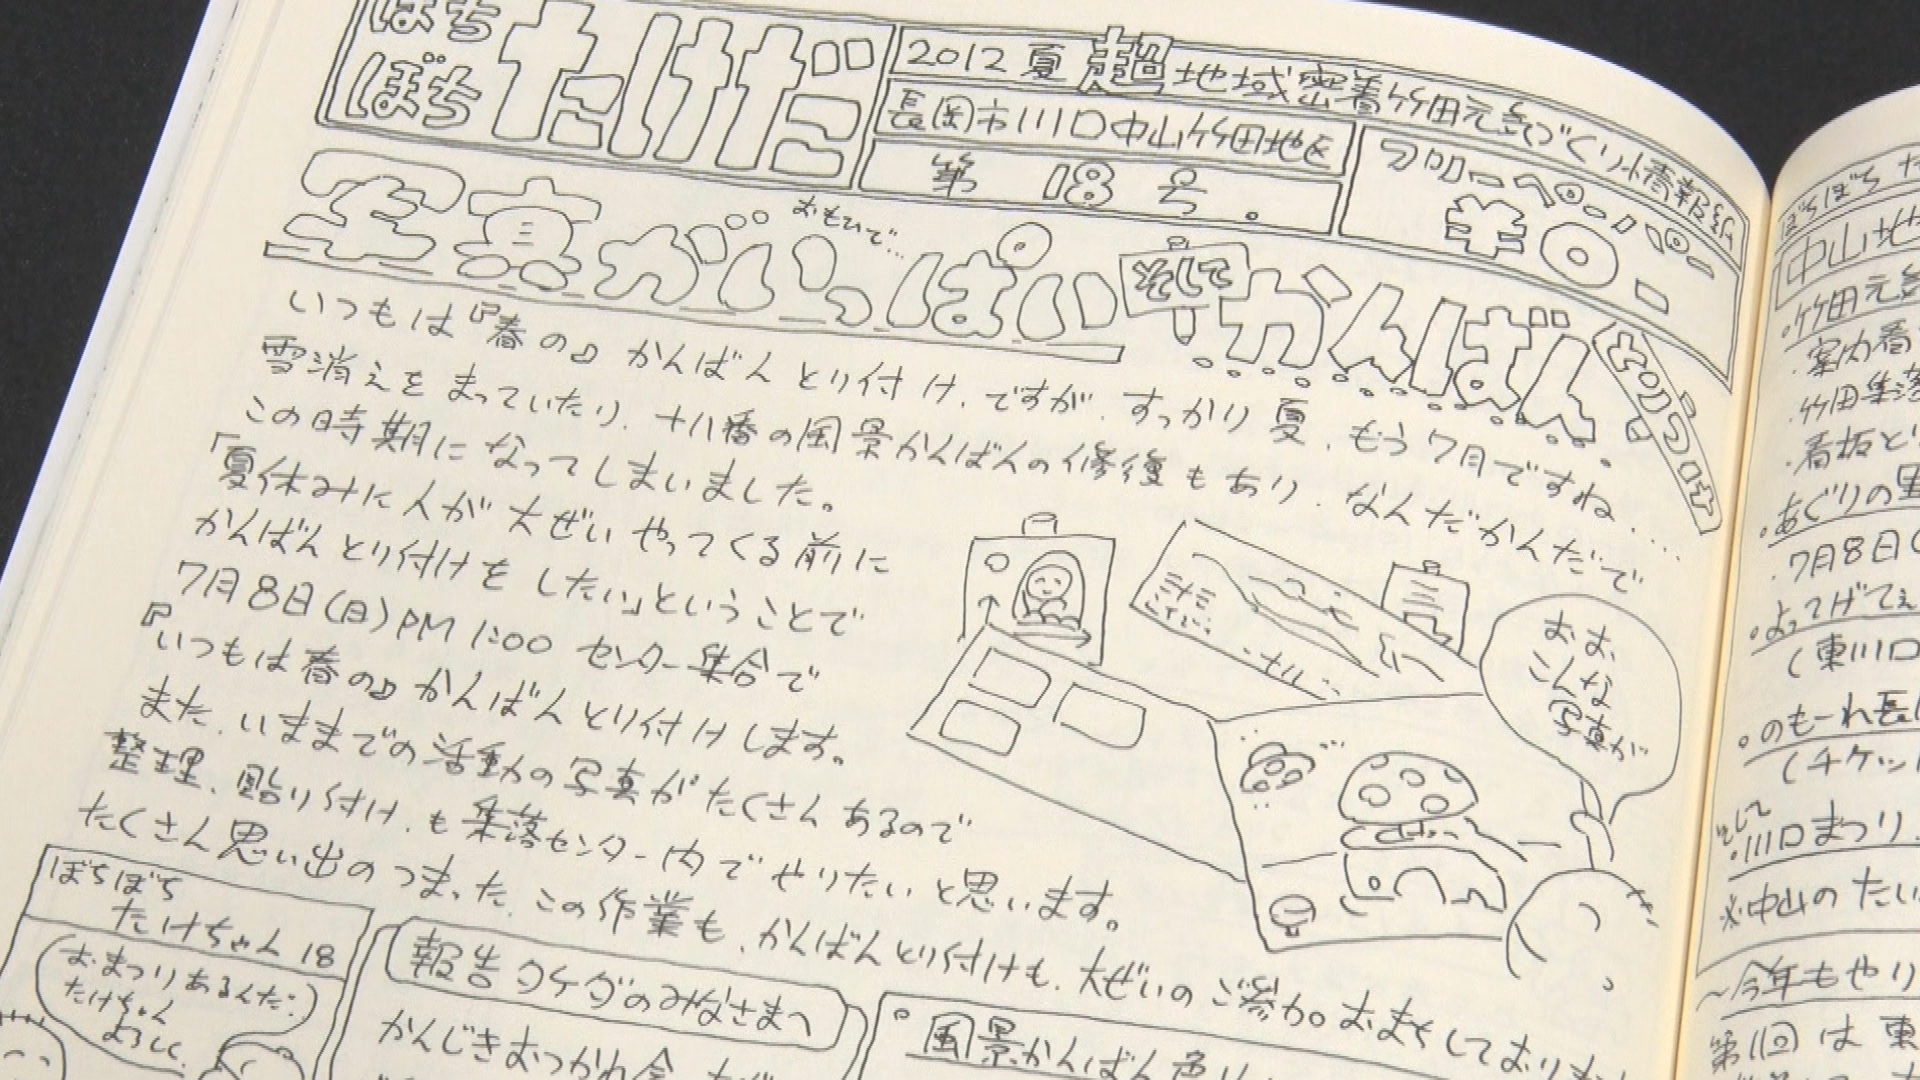 ぼちぼち たけだ
2012 夏 超地域密着竹田元気づくり情報紙
長岡市川口中山竹田地区
第 18 号.
フリーペーパー
¥0-
写真がいっぱい
おもいで…
そして
かんばん
とりつけ
いつもは『春の』かんばんとり付け、ですが、すっかり夏、もう7月ですね.....
雪消えをまっていたり、十八番の風景かんばんの修復もあり、なんだかんだで
この時期になってしまいました。
「夏休みに人が大ぜいやってくる前に
かんばんとり付けをしたい」ということで
7月8日(日)PM 1:00 センター集合で
『いつもは春の』かんばんとり付けします。
また、いままでの活動の写真がたくさんあるので
整理、貼り付け、も集落センター内でやりたいと思います。
たくさん思い出のつまった、この作業も、かんばんとり付けも、大ぜいのご参加おまちしており
おお、
こんな
写真が
ぼちぼち
たけちゃん 18
おまつりあるんだ!
たけちゃん
よろしく
報告 タケダのみなさまへ
かんじきおつかれ会
風景かんばん
ぼちぼち
中山地
・竹田元気
・案内看
・竹田集落
・看板と
・あぐりの里
・7月8日(
・よってげてぇ
(東川口
・のもーれ長
(チケッ
そして
・川口まつり
※中山のたい
～今年もやり
第11回は東